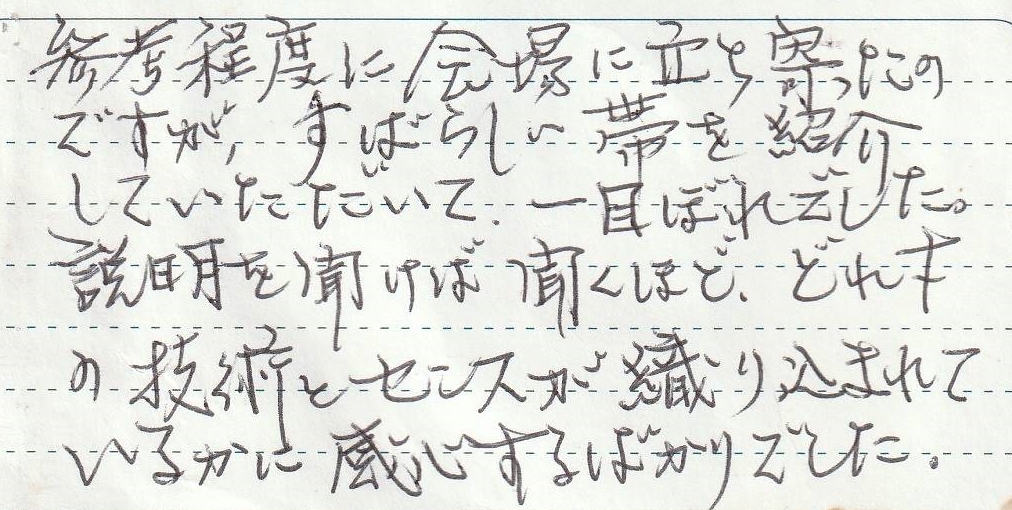 参考程度に会場に立ち寄ったの
ですが、すばらしい帯を紹介
していただいて、一目ぼれでした。
説明を聞けば聞くほど、どれキ
の技術とセンスが織り込まれて
いるかに感心するばかりでした。